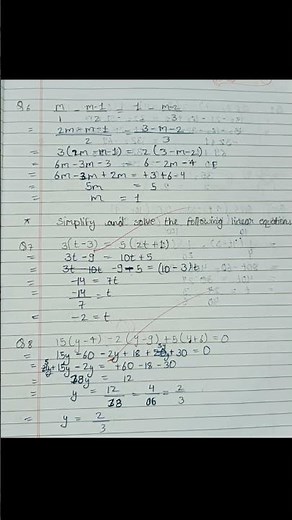 Q6 m - m-1 = 1 - m-2
1 2 3
= 2m - m-1 = 3-m-2
2 3
= 3(2m-m-1) = 2(3-m-2)
= 6m-3m-3 = 6-2m-4
= 6m-3m+2m = +3+6-4
= 5m = 5
= m = 1
* Simplify and solve the following linear equations
Q7 3(t-3) = 5(2t+1)
= 3t-9 = 10t+5
= 3t - 10t -9-5 = (10-3)t
= -14 = 7t
= -14 = t
7
= -2 = t
Q8 15(y-4)-2(y-9)+5(y+6)=0
= 15y-60-2y+18+5y+30=0
= 5y+15y-2y = +60-18-30
= 18y = 12
= y = 12 = 4 = 2
18 06 3
= y = 2
3